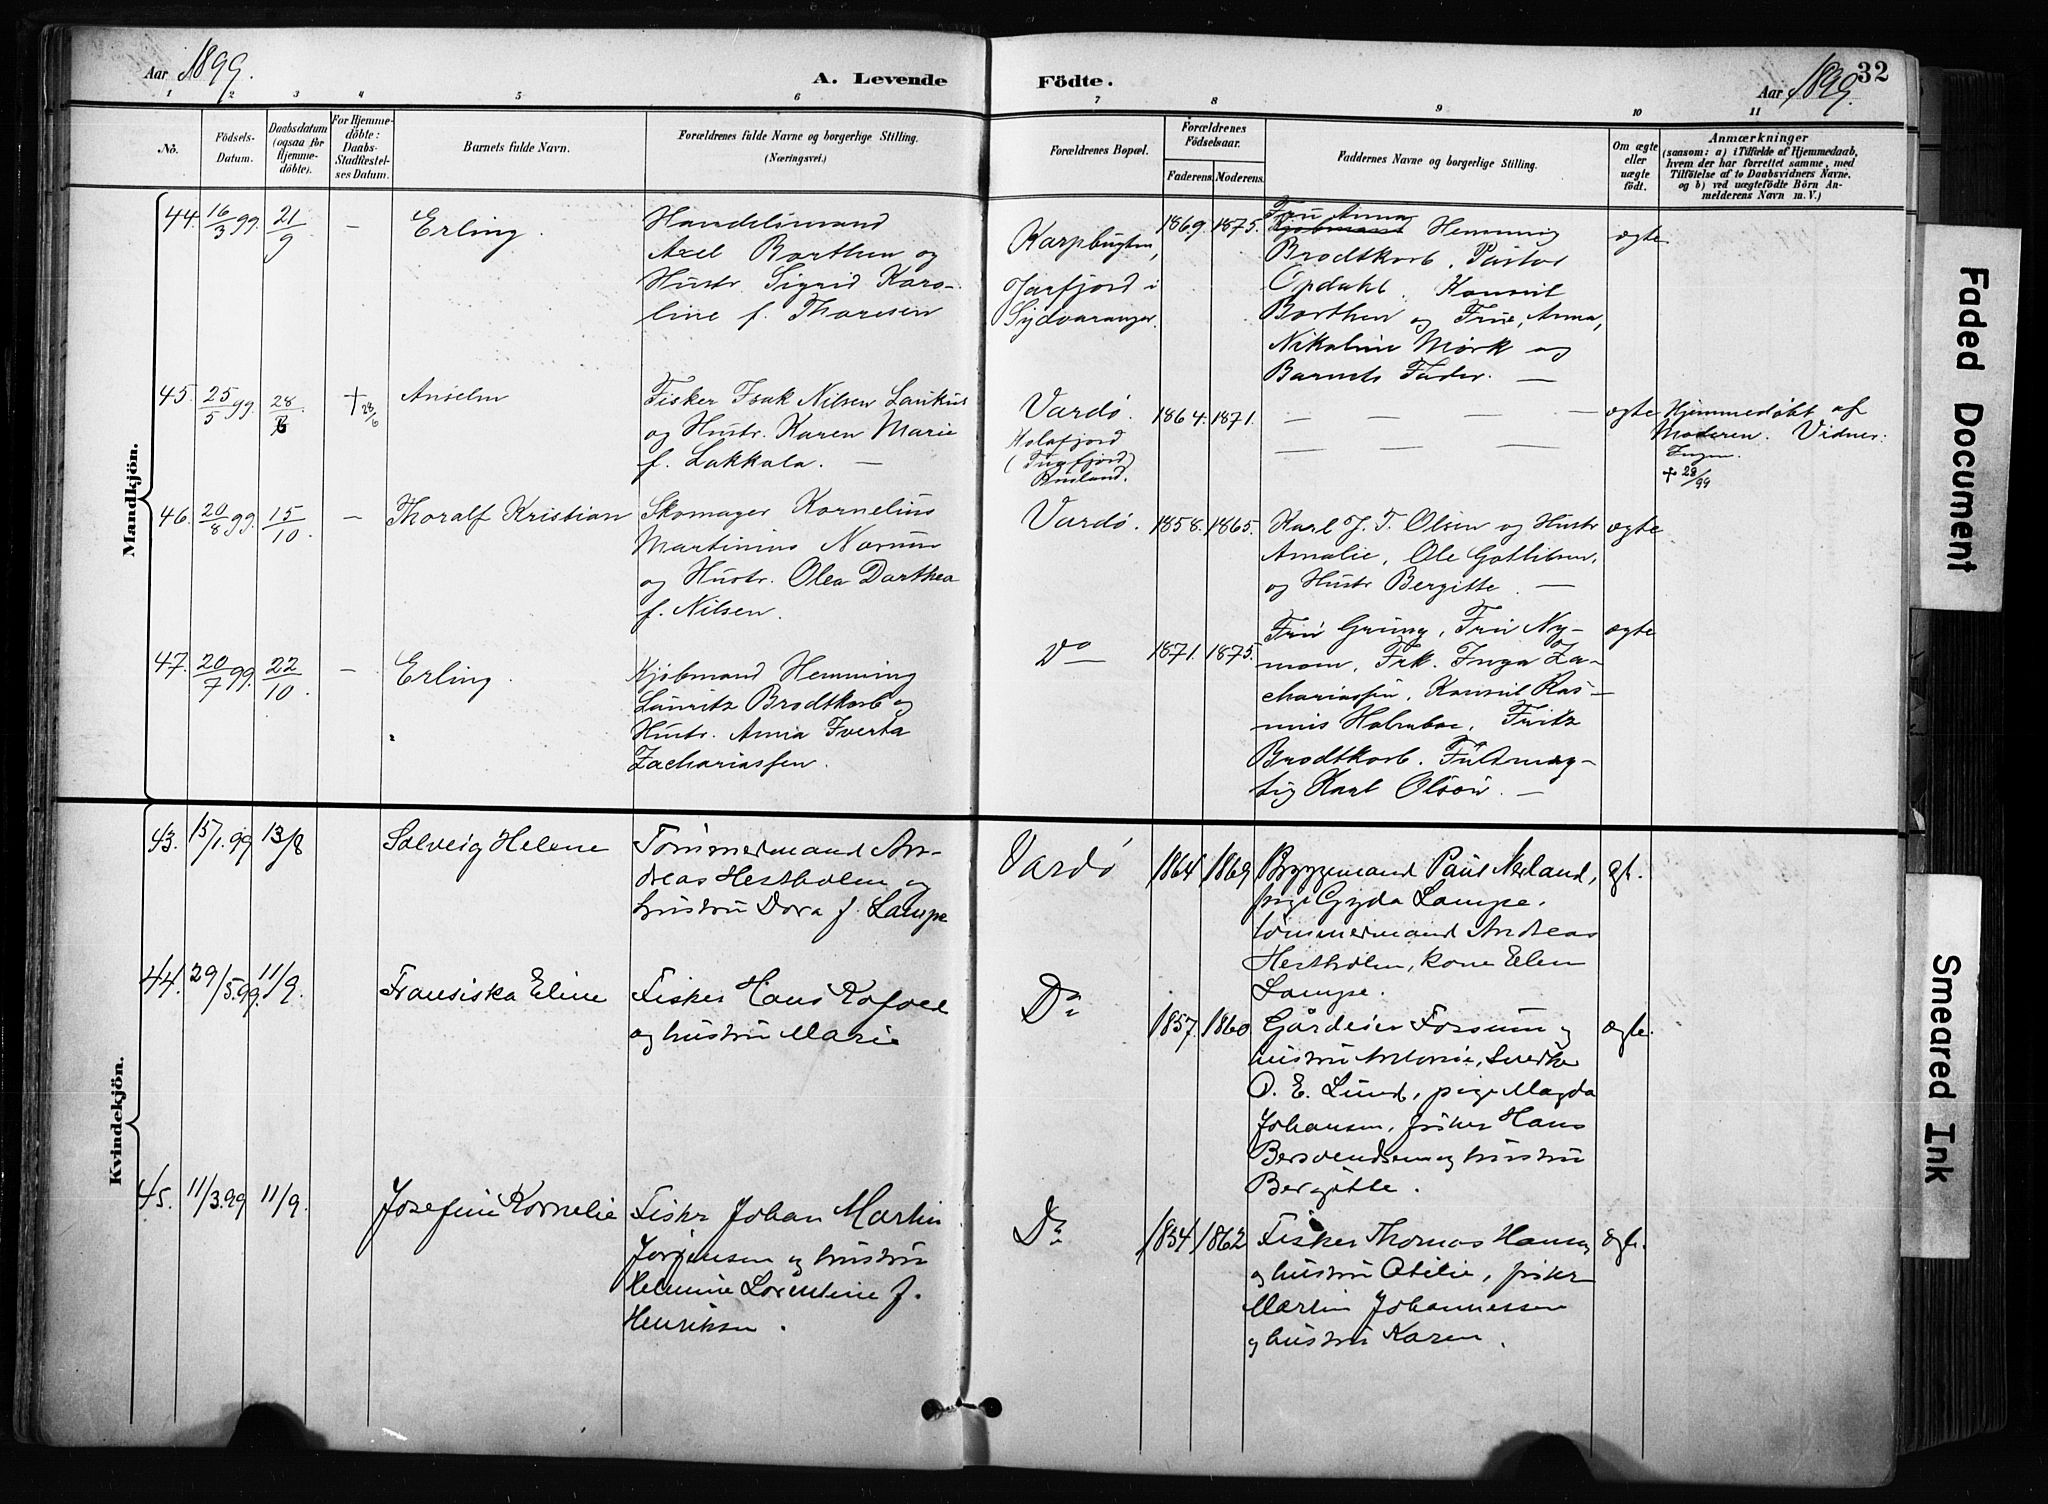 Aar 1899.
A. Levende
Födte.
Aar 1899.
32
1 2 3 4 5 6 7 8 9 10 11
No.
Födsels-Datum.
Daabsdatum (ogsaa for Hjemme-döbte).
For Hjemme-döbte: Daabs-Stadfæstel-ses Datum.
Barnets fulde Navn.
Forældrenes fulde Navne og borgerlige Stilling.
(Næringsvei.)
Forældrenes Bopæl.
Forældrenes Födselsaar.
Faderens. Moderens.
Faddernes Navne og borgerlige Stilling.
Om ægte eller uægte födt.
Anmærkninger
(saasom: a) i Tilfælde af Hjemmedaab,
hvem der har forrettet samme, med
Tilföielse af to Daabsvidners Navne,
og b) ved uægtefödte Börn An-
melderens Navn m. V.)
Mandkjön.
44. 16/3 99. 21/9 - Erling.
Handelsmand
Axel Borthen og
Hustr. Sigrid Karo-
line f. Thoresen
Karpbugten,
Jarfjord i
Sydvaranger.
1869. 1875.
Fru Anna
Kjøbmand Hemming
Brodtkorb. Pastor
Opdahl. Konsul
Borthen og Frue, Anna,
Nikoline Mørk og
Barnets Fader. —
ægte
45. 25/5 99. 28/6 † 28/6 Anselm
Fisker Isak Nilsen Laukus
og Hustr. Karen Marie
f. Lakkala. —
Vardø.
Kolafjord
Rusland.
1864. 1871.
— — — —
— — — —
ægte
Hjemmedøbt af
Moderen. Vidner:
Ingen.
46. 20/8 99. 15/10 - Thoralf Kristian
Skomager Kornelius
Martinius Norum
og Hustr. Olea Dorthea
f. Nilsen.
Vardø.
1858. 1865.
Karl J. T. Olsen og Hustr
Amalie, Ole Gottlibsen,
og Hustr Bergitte. —
ægte
47. 20/7 99. 22/10 - Erling.
Kjøbmand Hemming
Lauritz Brodtkorb og
Hustr. Anna Iverta
Zachariassen.
Do
1871. 1875.
Fru Grung, Fru Ny-
mom, Frk. Inga Za-
chariassen, Konsul Ras-
mus Holmboe, Fritz
Brodtkorb. Fuldmæg-
tig Karl Olsøn. —
ægte
Kvindekjön.
43. 15/1.99 13/8 Solveig Helene
Tømmermand An-
dreas Hestholen og
hustru Dora f. Lampe
Vardø
1864 1869
Bryggemand Paul Nerland,
pige Gyda Lampe,
tømmermand Andreas
Hestholen, kone Elen
Lampe.
ægt.
44. 29/5.99. 11/9. Fransiska Eline
Fisker Hans Kofoed
og hustru Marie
Do
1857. 1860
Gårdeier Forsum og
hustru Antonie, Snedker
O. E. Lund, pige Magda
Johansen, fisker Hans
Bersvendsen og hustru
Bergitte.
ægte.
45. 11/3.99 11/9. Josefine Kornelie
Fisker Johan Martin
Jørgensen og hustru
Helmine Lorentine f.
Henriksen.
Do
1854 1862
Fisker Thomas Hansen
og hustru Otilie, fisker
Martin Johannessen
og hustru Karen.
ægte.
Faded Document
Smeared Ink